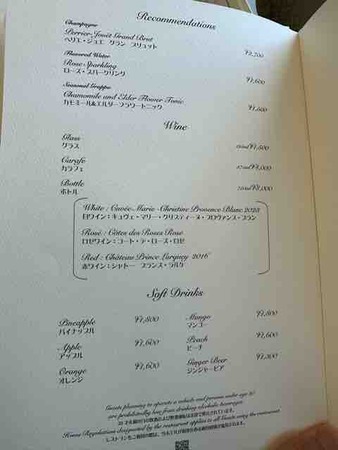 Recommendations
Champagne
Perrier-Jouët Grand Brut
ペリエ・ジュエ グラン ブリュット
Flavored Water
Rose Sparkling
ローズ・スパークリング
¥1,600
Chamomile and Elder Flower Tonic
カモミール&エルダーフラワートニック
Wine
Glass
グラス
Carafe
カラフェ
Bottle
ボトル
White : Cuvée Marie-Christine Provence Blanc 2023
白ワイン：キュヴェ・マリー・クリスティーヌ・プロヴァンス・ブラン
Rosé : Côtes des Roses Rose
ロゼワイン：コート・デ・ローズ・ロゼ
Red : Château Prince Larquey 2016
赤ワイン：シャトー プランス・ラルケ
Soft Drinks
Pineapple ¥1,800
パイナップル
Apple ¥1,600
アップル
Orange ¥1,600
オレンジ
Mango ¥1,800
マンゴー
Peach ¥1,600
ピーチ
Ginger Beer
ジンジャービア
Guests planning to operate a vehicle and persons under age 20
are prohibited by law from drinking alcoholic beverages.
House Regulations designated by the restaurant applies to all Guests using the restaurant.